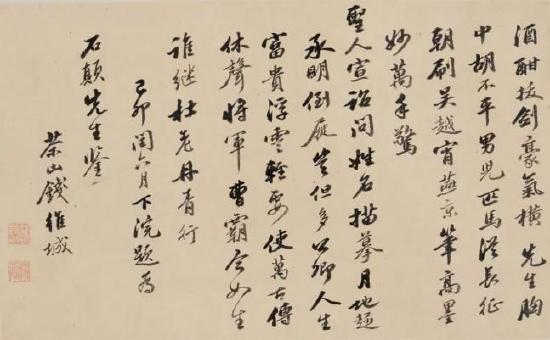 酒酣拔劍豪氣橫先生胸
中胡不平男兒匹馬從長征
朝刷吳越宵燕京筆高墨
妙萬手驚
聖人宣詔問姓名描摹月地超
承明倒屣豈但多公卿人生
富貴浮雲輕要使萬古傳
休聲將軍曹霸生
誰継杜老丹青行
己卯閏六月下浣題為
石顛先生鑒
茶山錢維城